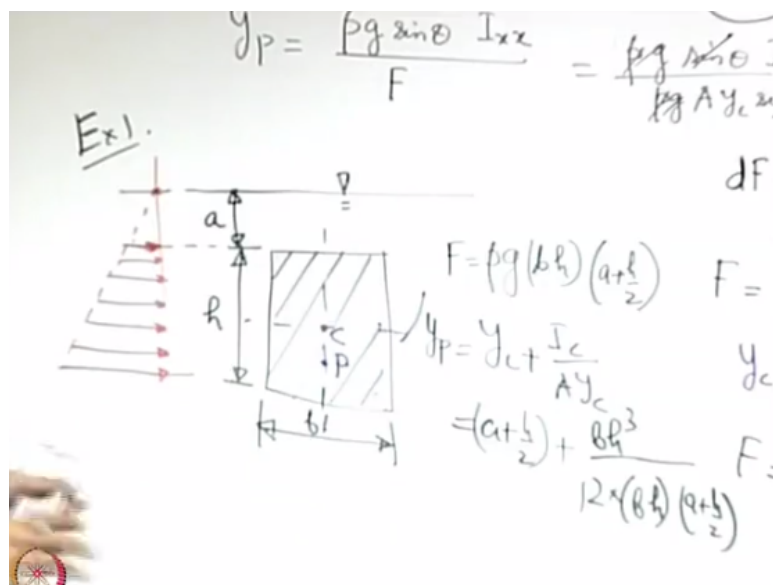 y_P = ρg sinθ I_xx / F = ρg sinθ I / ρg A y_c si
Ex 1.
dF
a
h
c
P
b
F = ρg (bh) (a + h/2)
F =
y_P = y_c + I_c / A y_c
y_c
= (a + h/2) + bh³ / 12 × (bh) (a + h/2)
F =